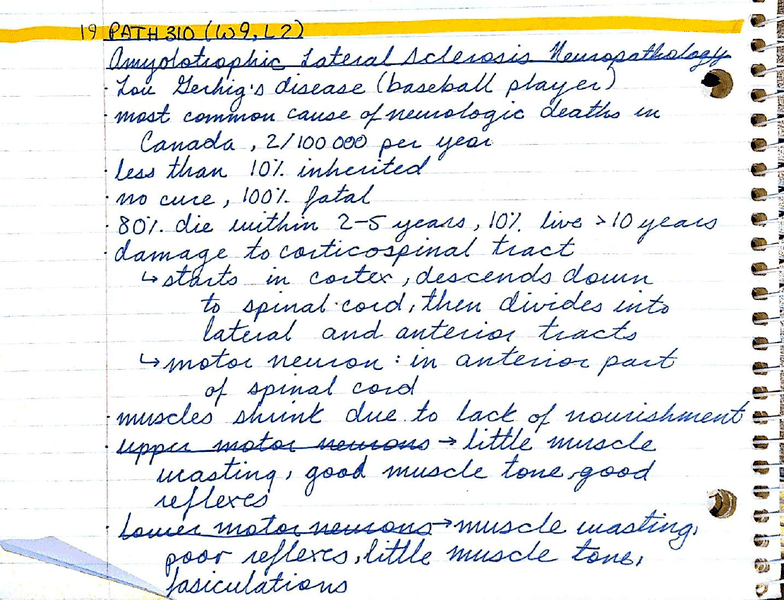 19 PATH 310 (W9, L2)
Amyolotrophic Lateral Sclerosis Neuropathology
· Lou Gerhig's disease (baseball player)
· most common cause of neurologic deaths in
Canada, 2/100 000 per year
· less than 10% inherited
· no cure, 100% fatal
· 80% die within 2-5 years, 10% live >10 years
· damage to corticospinal tract
↳ starts in cortex, descends down
to spinal cord, then divides into
lateral and anterior tracts
↳ motor neuron: in anterior part
of spinal cord
· muscles shrink due to lack of nourishment
· upper motor neurons → little muscle
wasting, good muscle tone, good
reflexes
· Lower motor neurons → muscle wasting,
poor reflexes, little muscle tone,
fasiculations